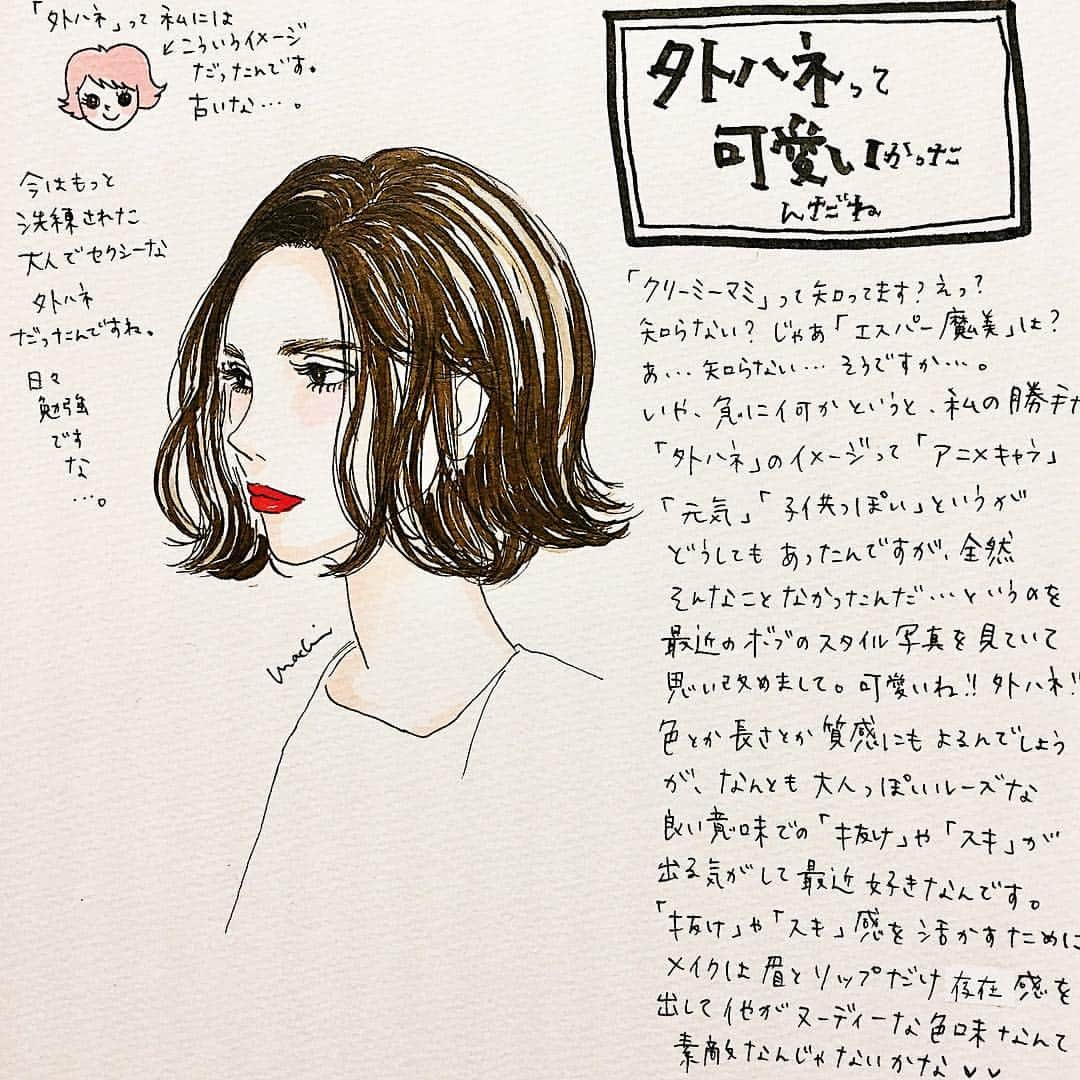 「外ハネ」って私には
↙こういうイメージ
だったんです。
古いな…。
今はもっと
洗練された
大人でセクシーな
外ハネ
だったんですね。
日々
勉強
です
な
…。
machi
外ハネって
可愛いかった
んだね
「クリーミーマミ」って知ってます?えっ?
知らない?じゃあ「エスパー魔美」は?
あ…知らない…そうですか…。
いや、急に何かというと、私の勝手な
「外ハネ」のイメージって「アニメキャラ」
「元気」「子供っぽい」というが
どうしてもあったんですが、全然
そんなことなかったんだ…というのを
最近のボブのスタイル写真を見ていて
思い改めまして。可愛いね!!外ハネ!!
色とか長さとか質感にもよるんでしょう
が、なんとも大人っぽいルーズな
良い意味での「抜け」や「スキ」が
出る気がして最近好きなんです。
「抜け」や「スキ」感を活かすために
メイクは眉とリップだけ存在感を
出して他がヌーディーな色味なんて
素敵なんじゃないかな♥♥